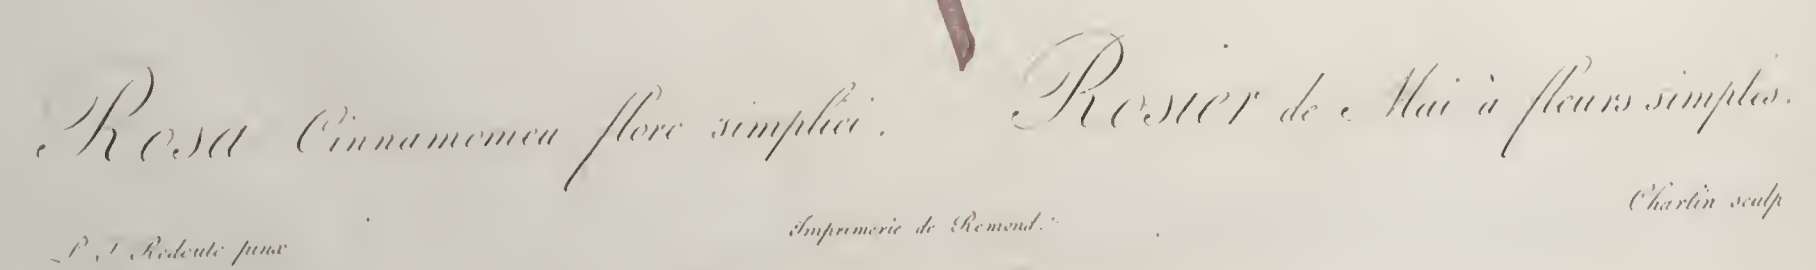 Rosa Cinnamomea flore simplici.
Rosier de Mai à fleurs simples.
P. J. Redouté pinx
Imprimerie de Remond.
Charlin sculp